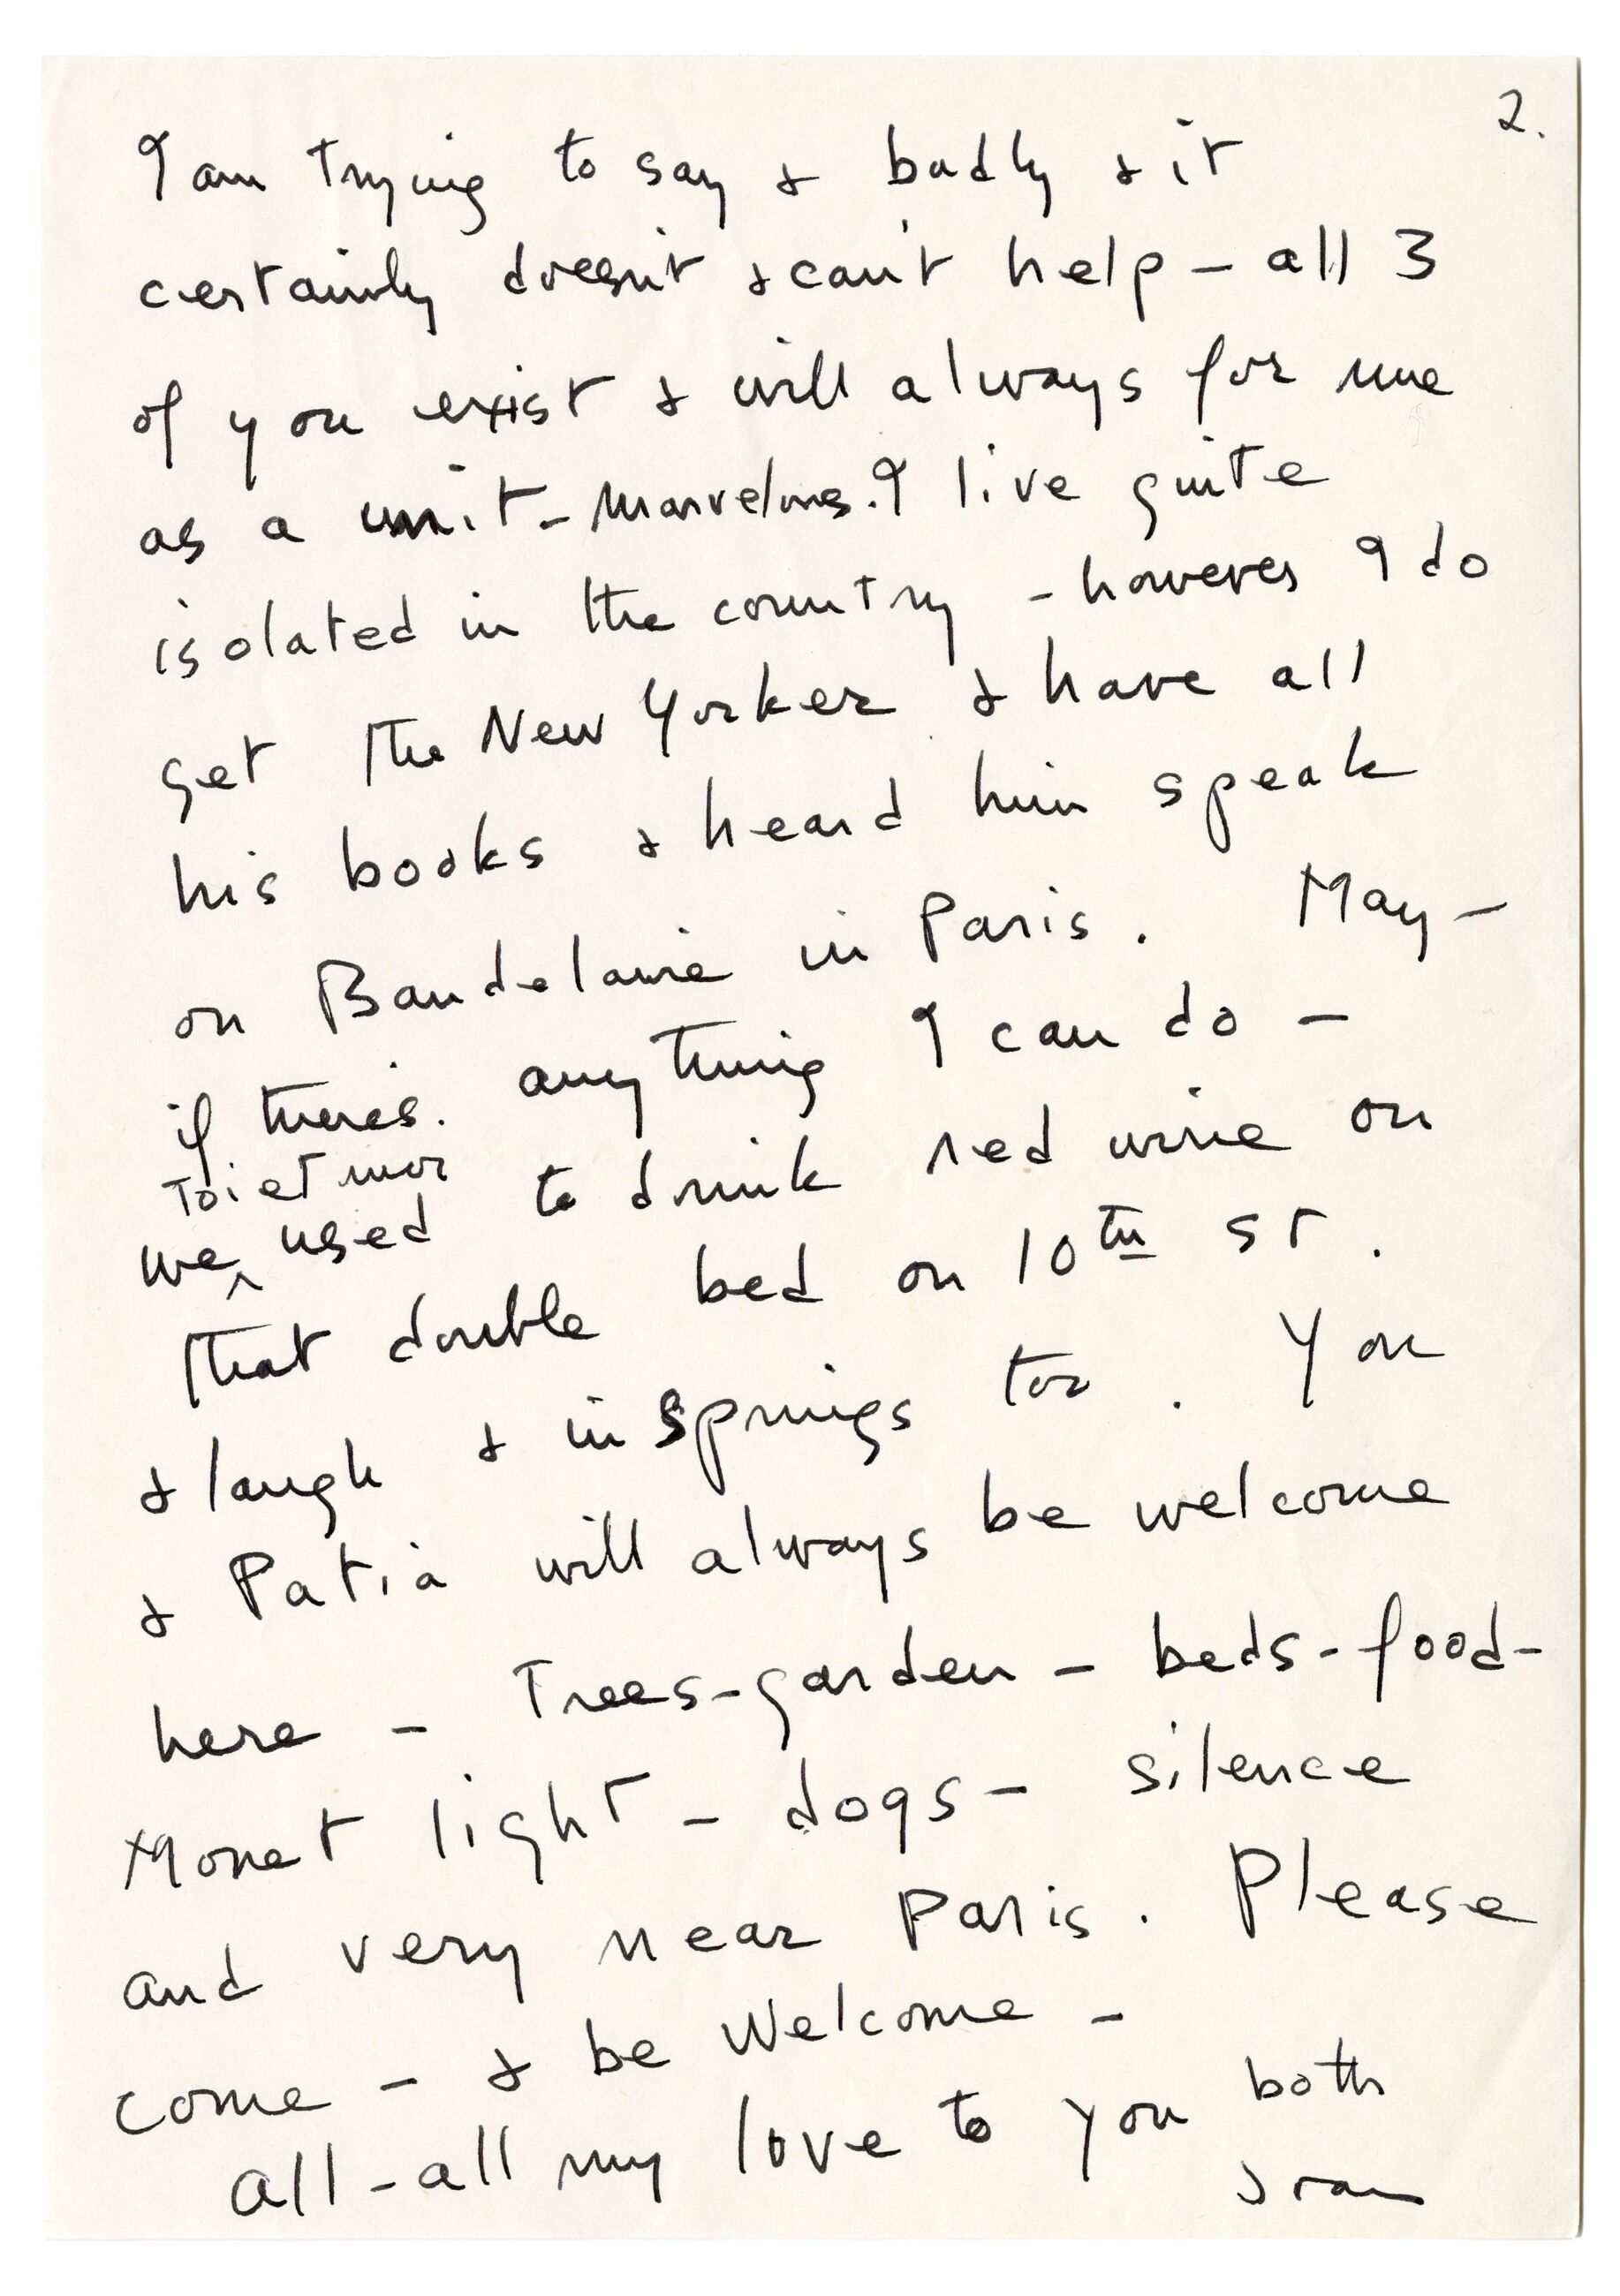 2.
I am trying to say & badly & it
certainly doesn't & can't help – all 3
of you exist & will always for me
as a unit – marvelous. I live quite
isolated in the country – however I do
get the New Yorker & have all
his books & heard him speak
on Baudelaire in Paris. May –
if there's. anything I can do –
toi et moi
we ^ used to drink red wine on
that double bed on 10th St.
& laugh & in Springs too. You
& Patia will always be welcome
here – Trees – garden – beds – food –
Monet light – dogs – silence
and very near Paris. Please
come – & be Welcome –
all – all my love to you both
Joan